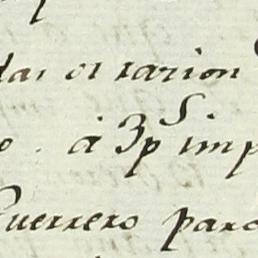 das et razion
o. à 3pS imp
Guerrero para